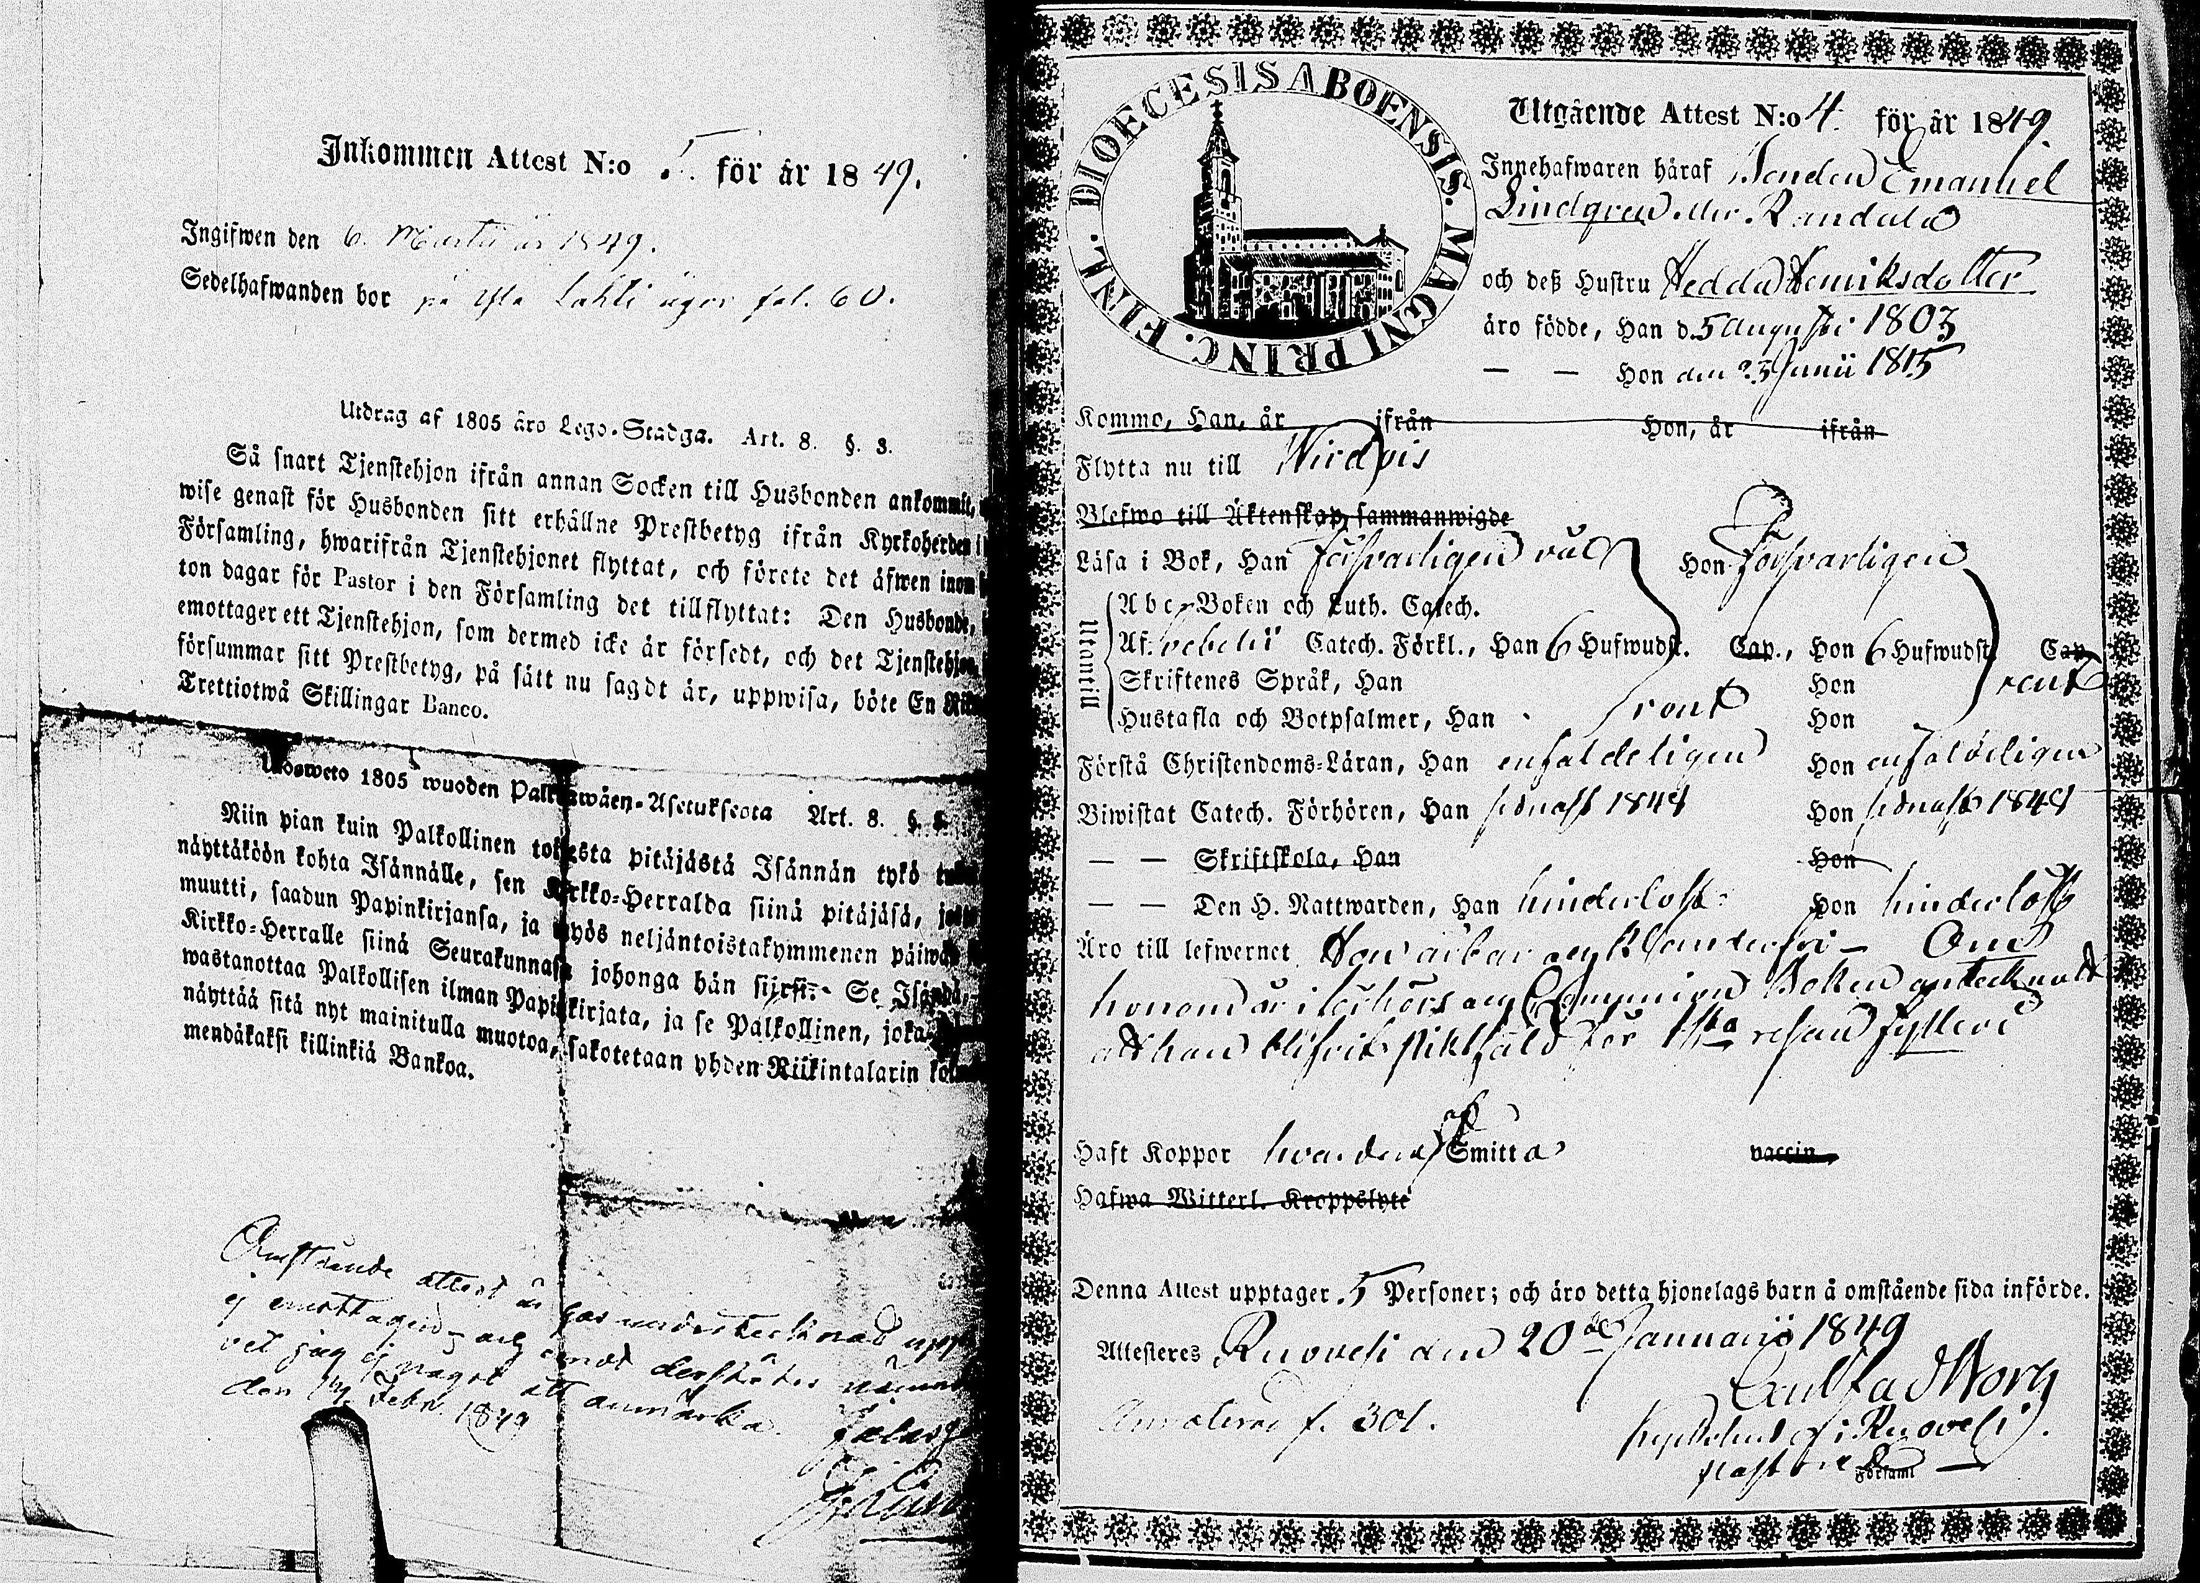 Inkommen Attest N:o 5. för år 1849.
Ingifwen den 6. Martii år 1849.
Sedelhafwanden bor på Lahti ägor fol. 60.
Utdrag af 1805 års Lego-Stadga. Art. 8. §. 3.
Så snart Tjenstehjon ifrån annan Socken till Husbonden ankommit,
wise genast för Husbonden sitt erhållne Prestbetyg ifrån Kyrkoherden i
Församling, hwarifrån Tjenstehjonet flyttat, och förete det äfwen inom
ton dagar för Pastor i den Församling det tillflyttat: Den Husbonde,
emottager ett Tjenstehjon, som dermed icke är försedt, och det Tjenstehjon,
försummar sitt Prestbetyg, på sätt nu sagdt är, uppwisa, böte En
Trettiotwå Skillingar Banco.
Ulosweto 1805 wuoden Palkkawäen-Asetuksesta Art. 8. §.
Niin pian kuin Palkollinen toisesta pitäjästä Isännän tykö
näyttäköön kohta Isännälle, sen Kirkko-Herralda siinä pitäjäsä,
muutti, saadun Papinkirjansa, ja myös neljäntoistakymmenen päiwän
Kirkko-Herralle siinä Seurakunnasa johonga hän siirsi. Se Isändä,
wastanottaa Palkollisen ilman Papinkirjata, ja se Palkollinen, joka
näyttää sitä nyt mainitulla muotoa, sakotetaan yhden Riikintalarin
mendäkaksi killinkiä Bankoa.
Omstående attest är hos undertecknad upp
ej emottagen, och emot dess
vet jag ej något att anmärka.
den Febr. 1849
DIOECESIS ABOENSIS. MAGNI PRINC. FINL.
Utgående Attest N:o 4. för år 1849.
Innehafwaren häraf Bonden Emanuel
Lindgren eller Randala
och deß Hustru Hedda Henriksdotter
äro födde, Han d. 5 Augusti 1803
— — Hon den 23 Junii 1815
Kommo, Han, år ifrån Hon, år ifrån
Flytta nu till Wirdois
Blefwo till Äktenskap sammanwigde
Läsa i Bok, Han försvarligen Hon försvarligen
Utantill
Abc-Boken och Luth. Catech.
Af Svebelii Catech. Förkl., Han 6 Hufwudst. Cap., Hon 6 Hufwudst. Cap.
Skriftenes Språk, Han Hon
Hustafla och Botpsalmer, Han Hon
Förstå Christendoms-Läran, Han enfaldeligen Hon enfaldeligen
Biwistat Catech. Förhören, Han senast 1844 Hon senast 1844
— — Skriftskola, Han Hon
— — Den H. Nattwarden, Han hinderlöst Hon hinderlöst
Äro till lefwernet Hon ärbar och klanderfri — Om
honom är i Communion Boken antecknadt
att han blifvit pliktfäld för 1sta resan fylleri
Haft Koppor hvardera Smitta vaccin.
Hafwa Witterl. Kroppslyte
Denna Attest upptager 5 Personer; och äro detta hjonelags barn å omstående sida införde.
Attesteras Ruovesi den 20de Januarii 1849
f. 301.
i Ruovesi.
Församl